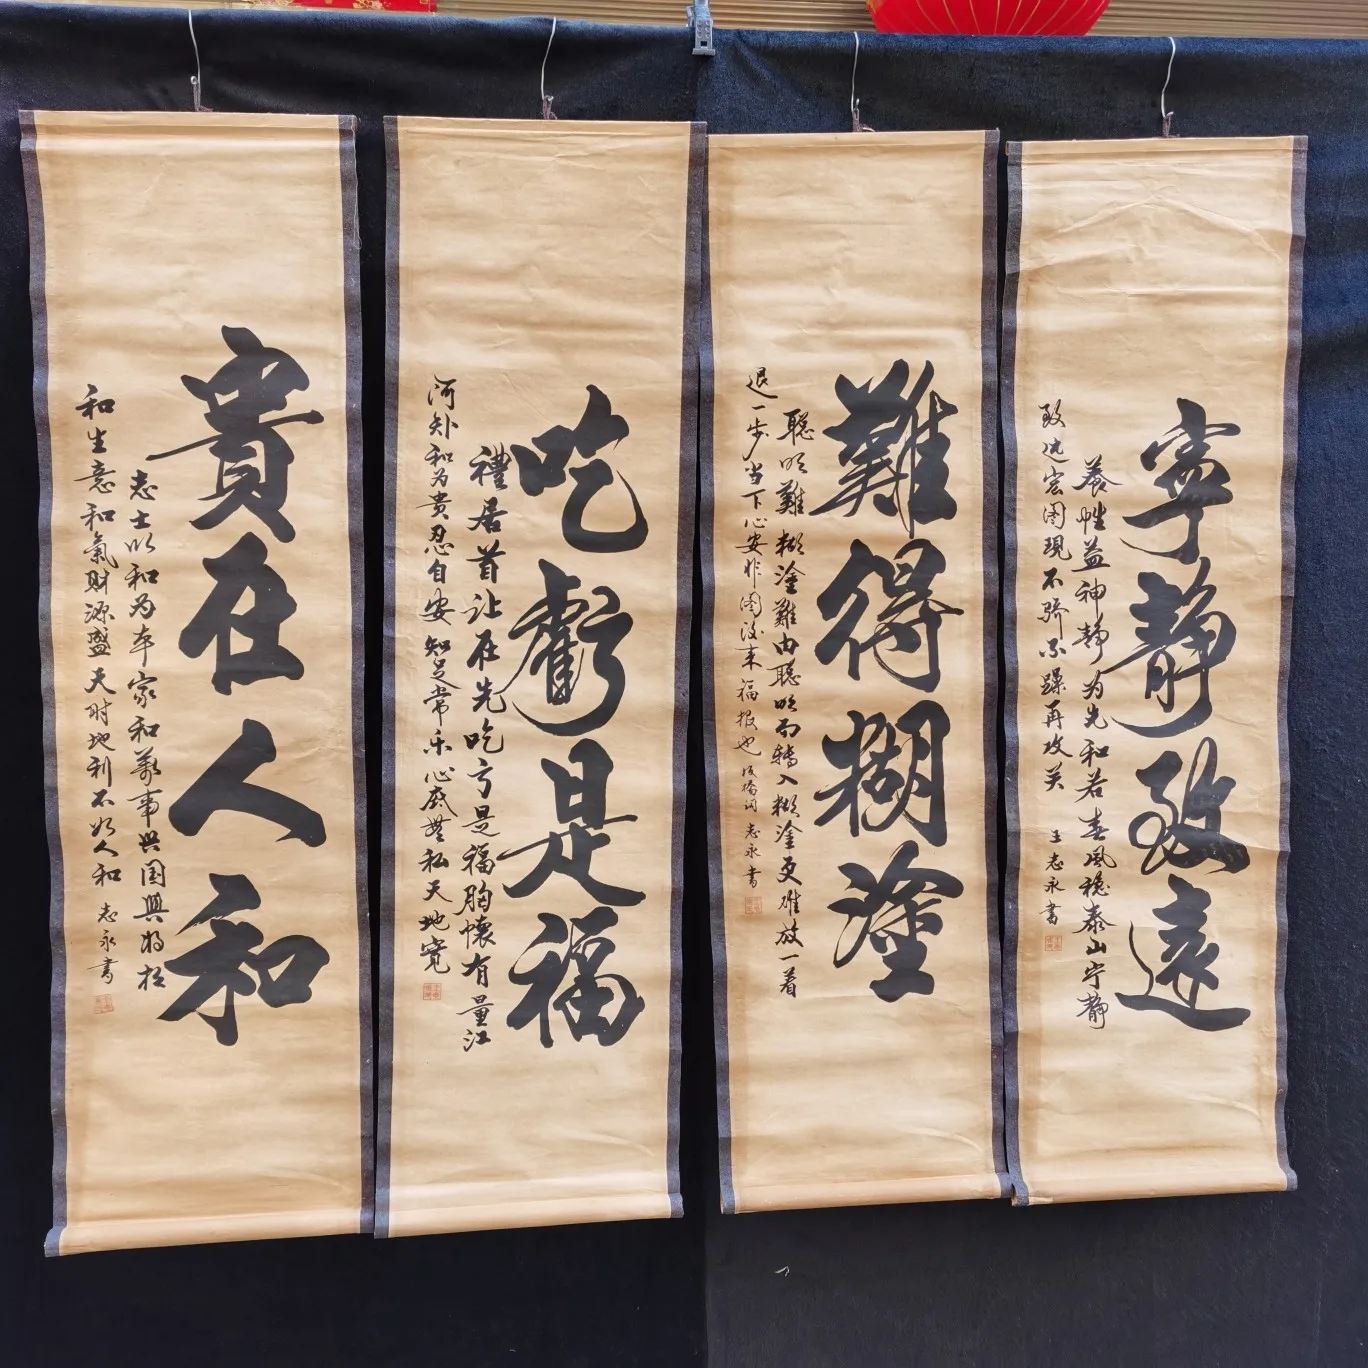 寧靜致遠
養性益神静为先和若春風穩泰山宁静
致远宏图現不骄不躁再攻关 王志永書
難得糊塗
聪明難糊塗難由聪明而轉入糊塗更难放一着
退一步当下心安非图後来福报也 板橋词 志永書
吃虧是福
禮居首让在先吃亏是福胸懷有量江
河和为贵忍自安知足常乐心底無私天地宽
貴在人和
志士以和为本家和萬事兴国興将相
和生意和氣財源盛天时地利不如人和 志永書